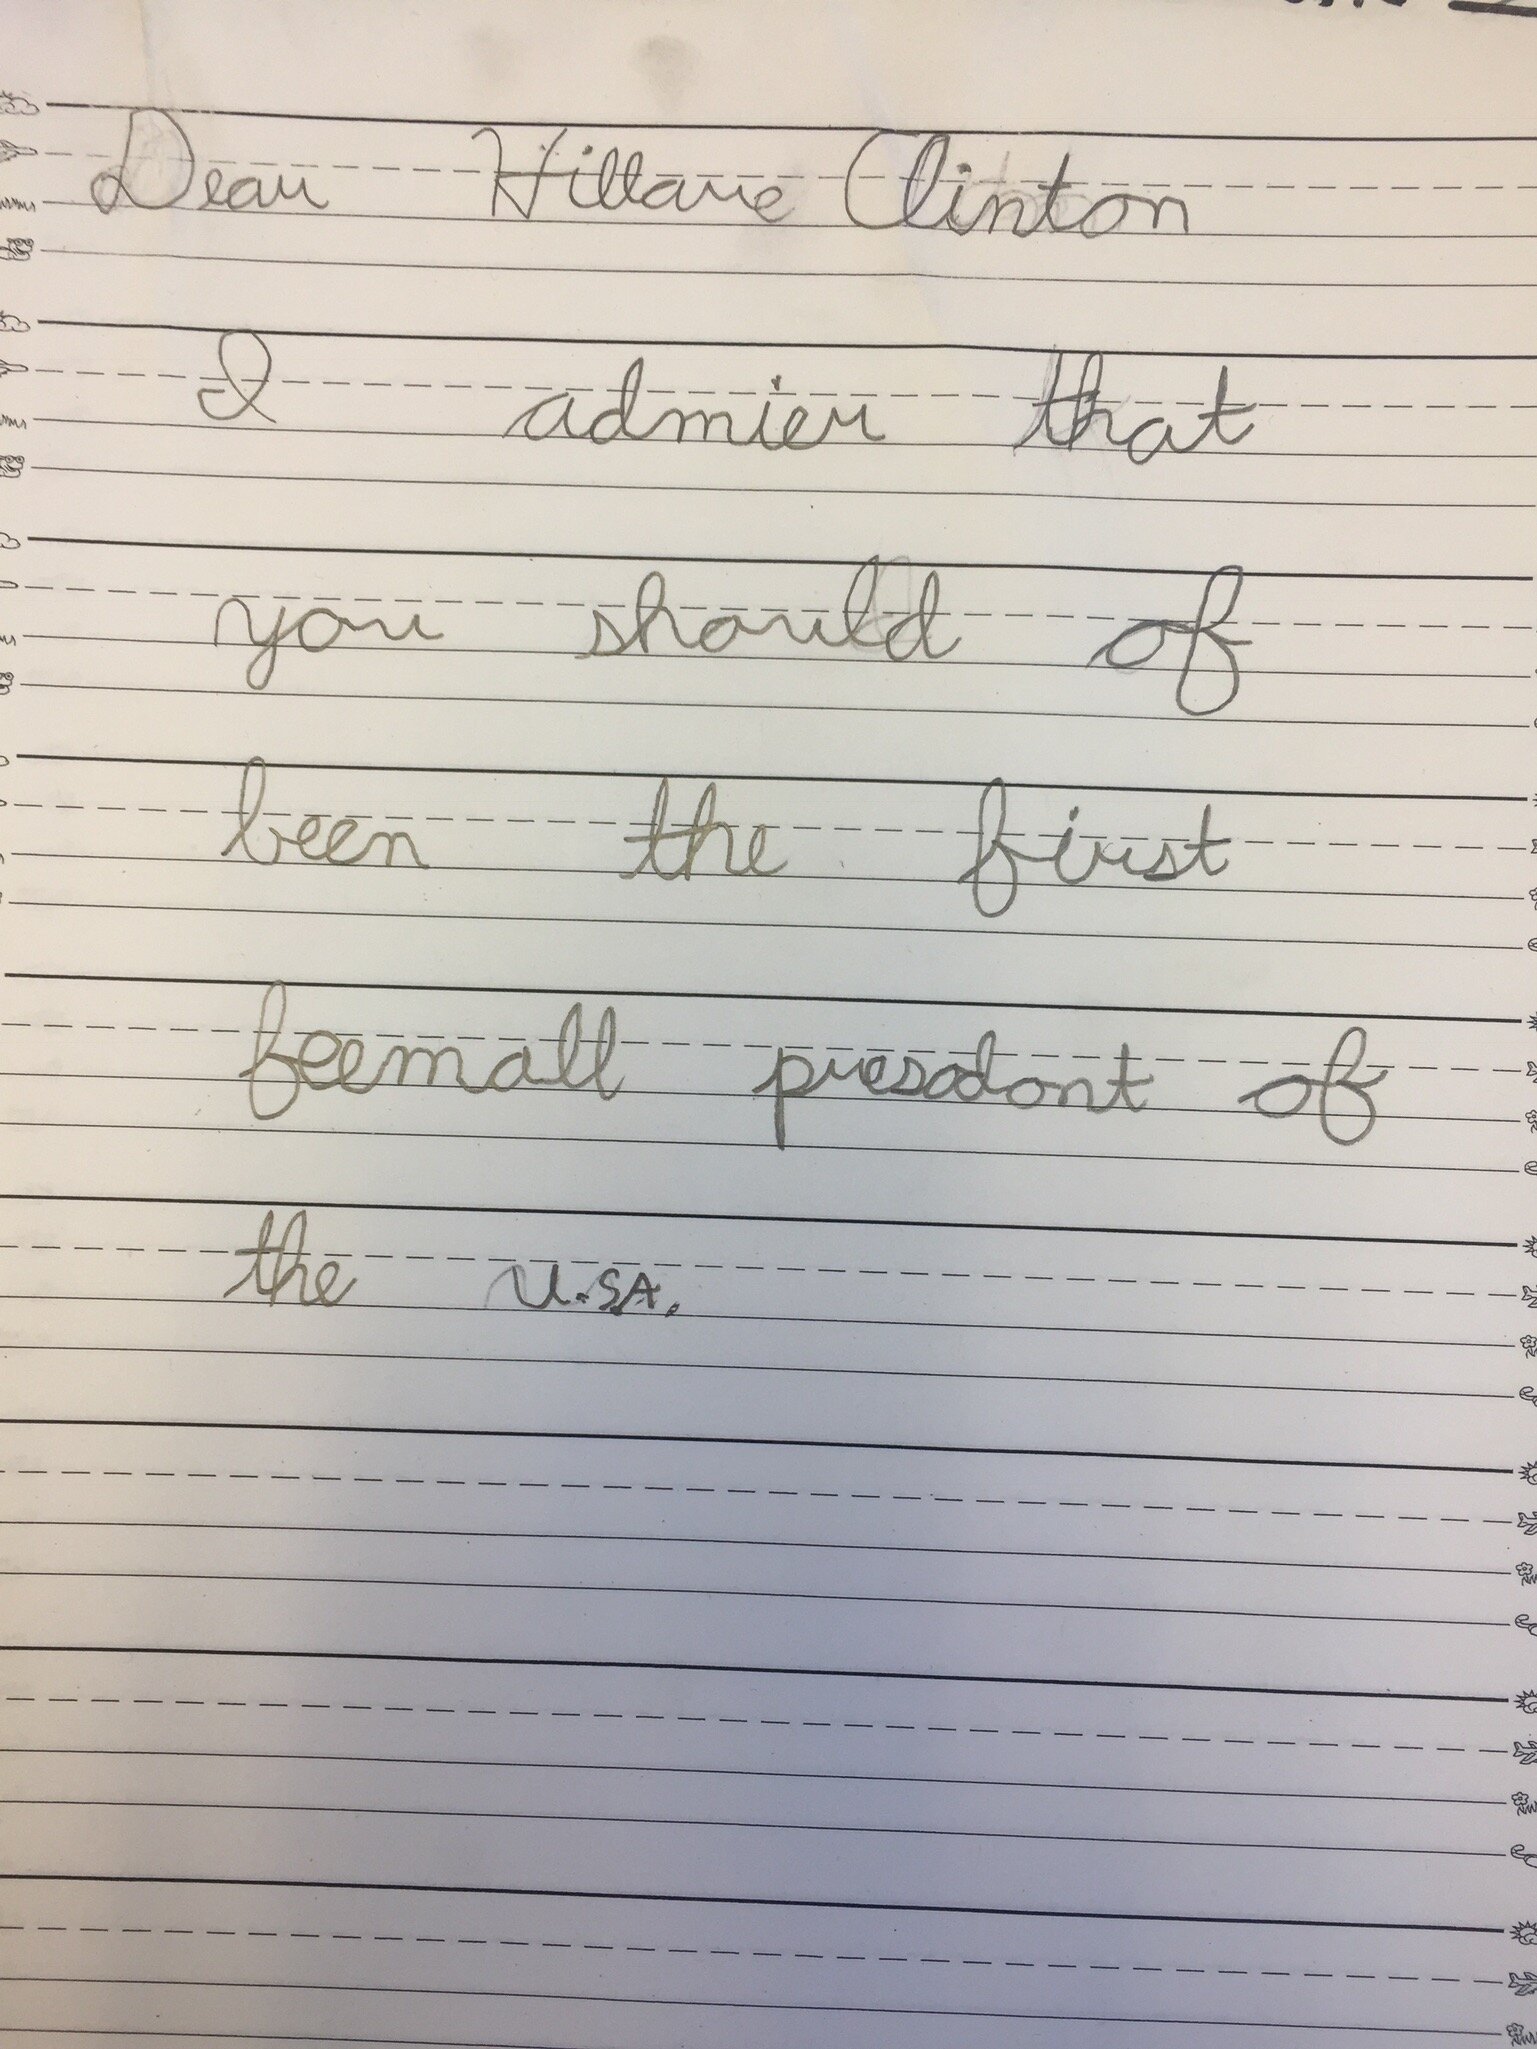 Dear Hillare Clinton
I admier that
you should of
been the first
feemall presadont of
the U.SA.